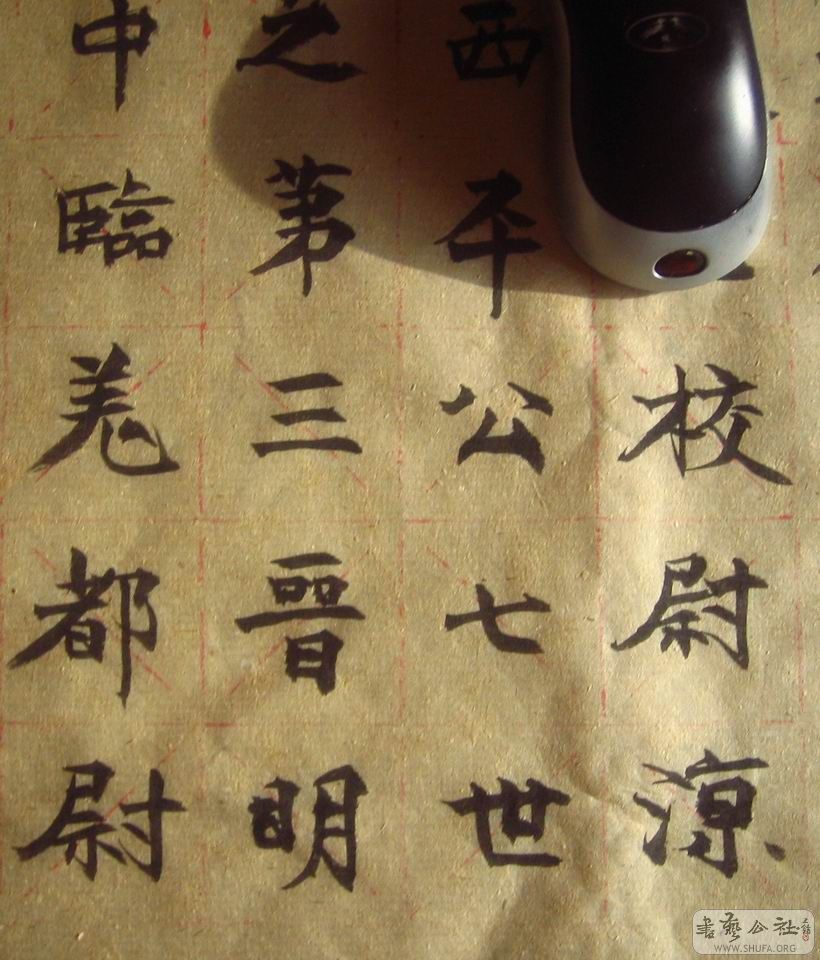 校尉涼
西平公七世
之第三晉明
中臨羌都尉
書藝公社
WWW.SHUFA.ORG